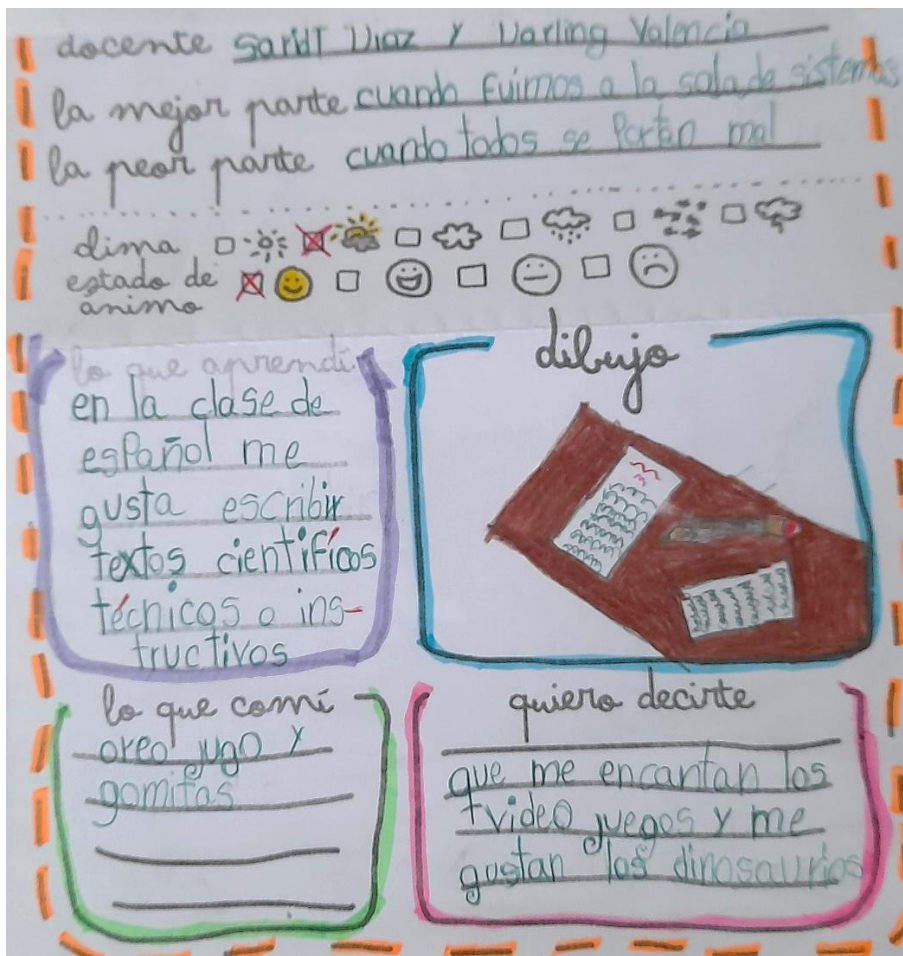 docente Saridt Diaz y Darling Valencia
la mejor parte cuando fuimos a la sala de sistemas
la peor parte cuando todos se Portan mal
clima
estado de
ánimo
lo que aprendí
en la clase de
esPañol me
gusta escribir
textos científicos
técnicos o ins-
tructivos
dibujo
lo que comí
oreo jugo y
gomitas
quiero decirte
que me encantan los
video juegos y me
gustan los dinosaurios